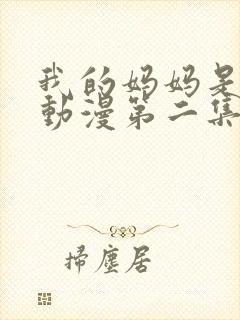 我的妈妈是
動漫第二集
掃塵居